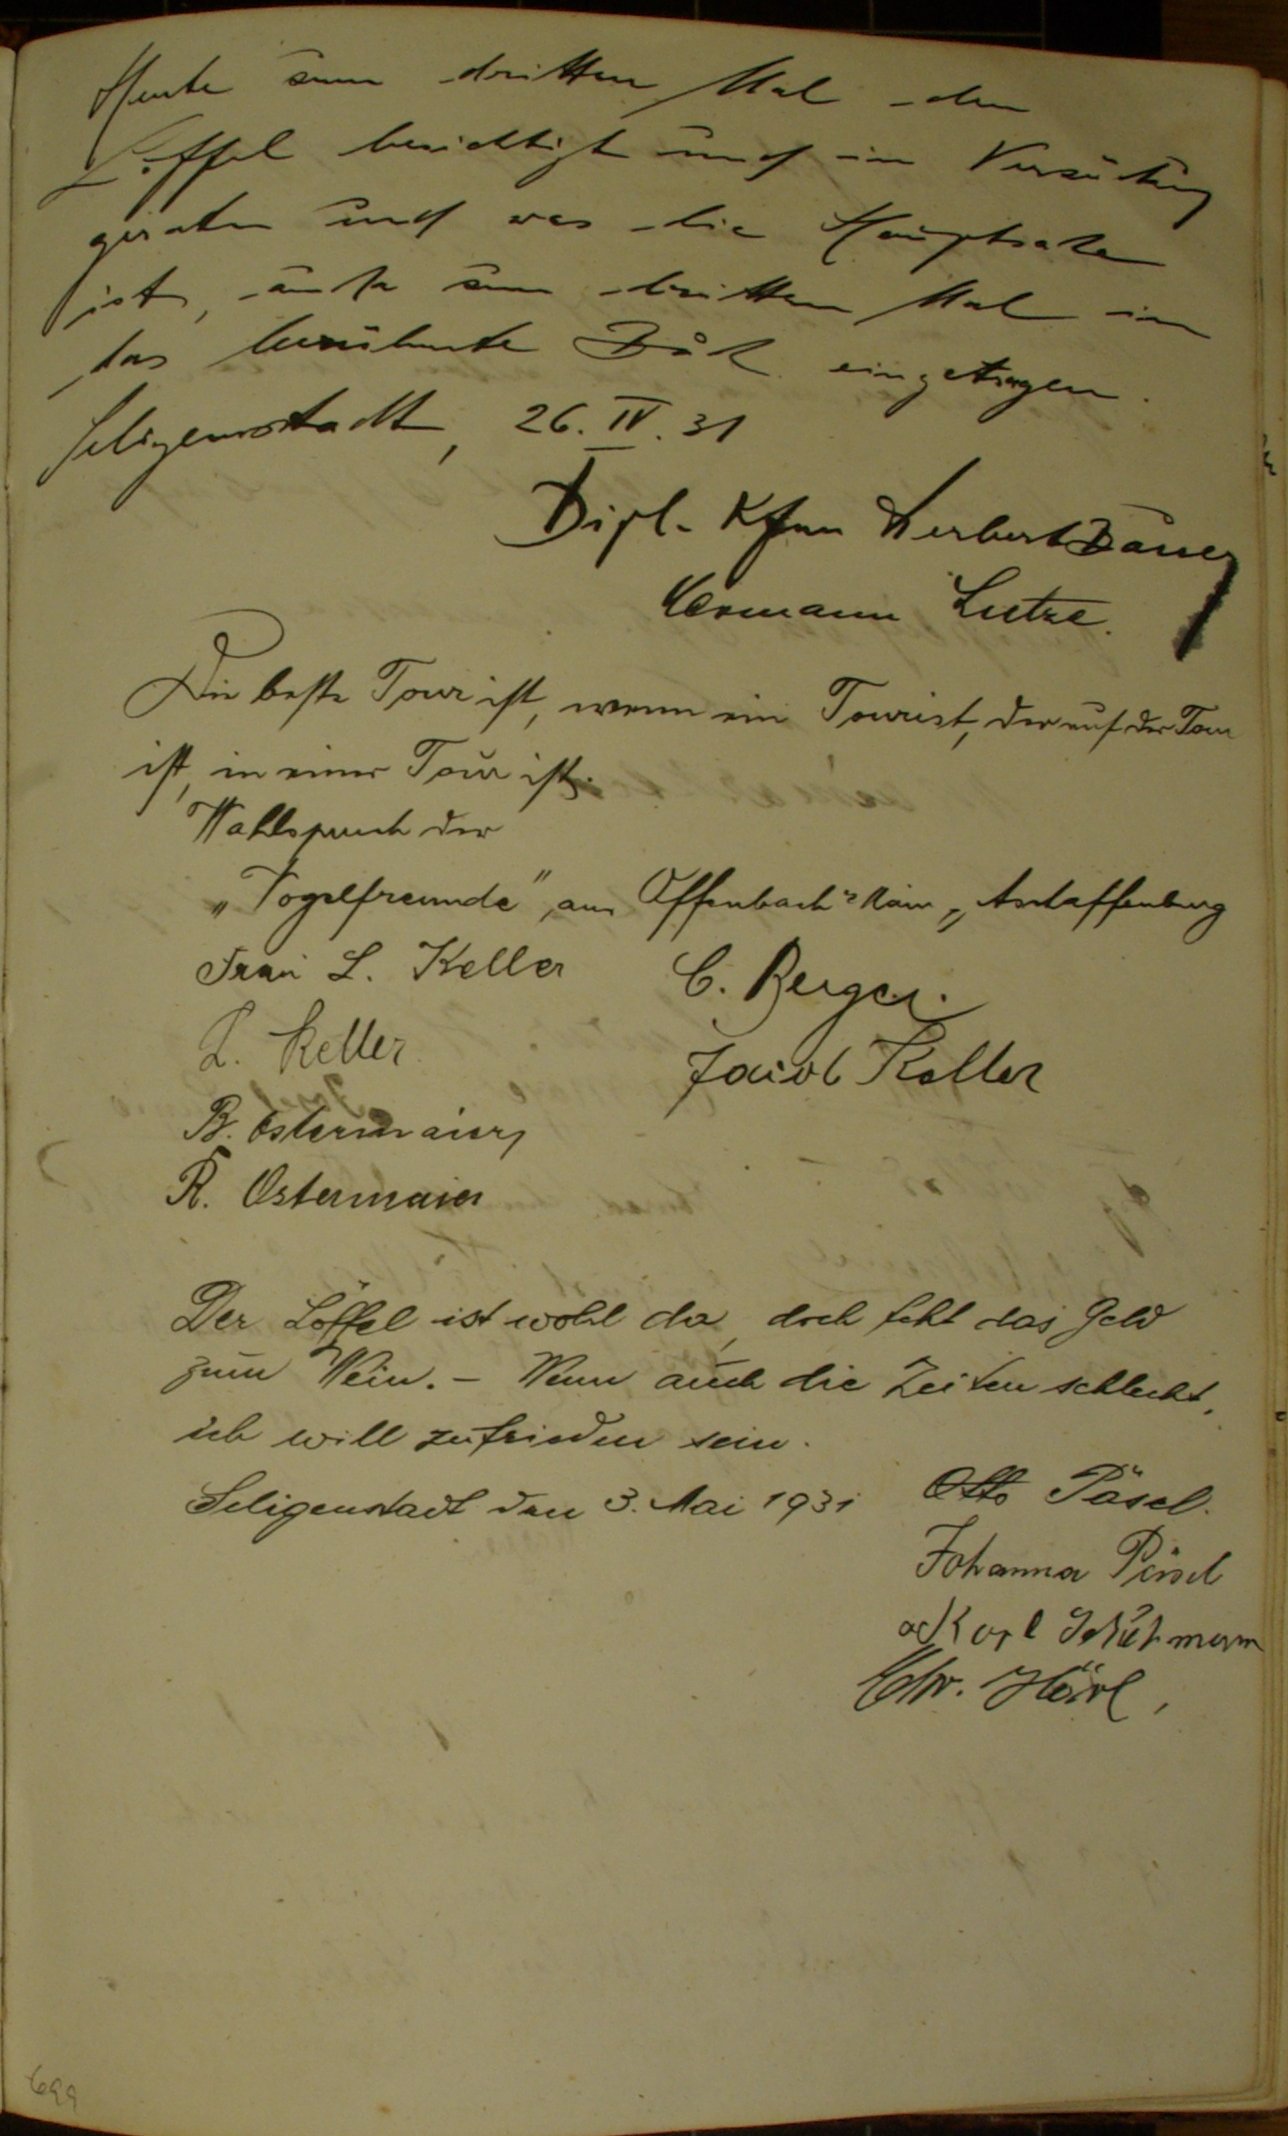 Heute zum dritten Mal den
Löffel besichtigt und in Verzückung
geraten und was die Hauptsache
ist, auch zum dritten Mal in
das berühmte Buch eingetragen.
Seligenstadt, 26. IV. 31
Dipl.-Kfm Herbert Bauer
Hermann Lutze.
Die beste Tour ist, wenn ein Tourist, der auf der Tour
ist, in einer Tour ißt.
Wahlspruch der
„Vogelfreunde“, aus Offenbach a/Main „ Aschaffenburg
Frau L. Keller
C. Berger.
L. Keller
Jacob Keller
B. Ostermaier
R. Ostermaier
Der Löffel ist wohl da, doch fehlt das Geld
zum Wein. – Wenn auch die Zeiten schlecht,
ich will zufrieden sein.
Seligenstadt den 3. Mai 1931
Otto Päsel.
Johanna Päsel
Karl Schuhmann
Chr. Hörl,
699